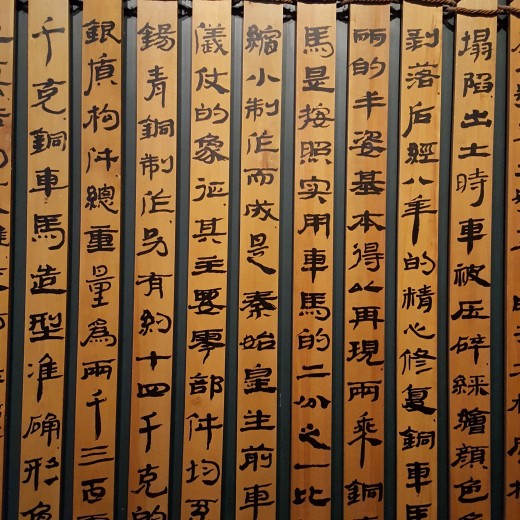 塌陷出土時車被压碎綵繪顏色
剥落后經八年的精心修复銅車馬
丽的丰姿基本得以再現兩乘銅
馬是按照实用車馬的二份之一比
縮小制作而成是秦始皇生前車
儀仗的象征其主要零部件均
錫青銅制作另有約十四千克的
銀質构件總重量爲兩千三百
千克銅車馬造型准确形象